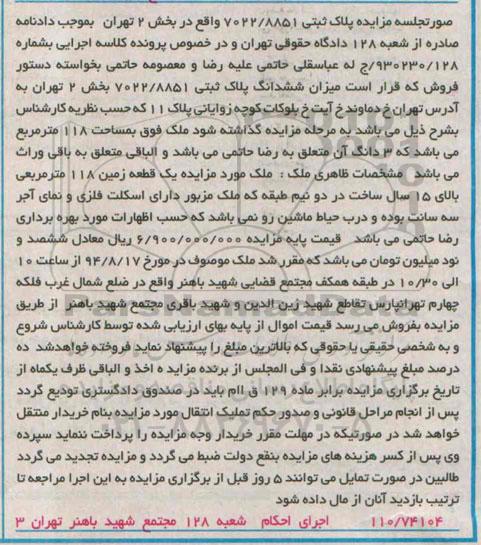 صورتجلسه مزایده پلاک ثبتی ۷۰۲۲/۸۸۵۱ واقع در بخش ۲ تهران بموجب دادنامه
صادره از شعبه ۱۲۸ دادگاه حقوقی تهران و در خصوص پرونده کلاسه اجرایی بشماره
۹۳۰۲۳۰/۱۲۸/ج له عباسقلی حاتمی علیه رضا و معصومه حاتمی بخواسته دستور
فروش که قرار است میزان ششدانگ پلاک ثبتی ۷۰۲۲/۸۸۵۱ بخش ۲ تهران به
آدرس تهران خ دماوند خ آیت خ بلوکات کوچه زوایانی پلاک ۱۱ که حسب نظریه کارشناس
بشرح ذیل می باشد به مرحله مزایده گذاشته شود ملک فوق بمساحت ۱۱۸ مترمربع
می باشد که ۳ دانگ آن متعلق به رضا حاتمی می باشد و الباقی متعلق به باقی وراث
می باشد مشخصات ظاهری ملک : ملک مورد مزایده یک قطعه زمین ۱۱۸ مترمربعی
بالای ۱۵ سال ساخت در دو نیم طبقه که ملک مزبور دارای اسکلت فلزی و نمای آجر
سه سانت بوده و درب حیاط ماشین رو نمی باشد که حسب اظهارات مورد بهره برداری
رضا حاتمی می باشد قیمت پایه مزایده ۶/۹۰۰/۰۰۰/۰۰۰ ریال معادل ششصد و
نود میلیون تومان می باشد که مقرر شد ملک موصوف در مورخ ۹۴/۸/۱۷ از ساعت ۱۰
الی ۱۰/۳۰ در طبقه همکف مجتمع قضایی شهید باهنر واقع در ضلع شمال غرب فلکه
چهارم تهرانپارس تقاطع شهید زین الدین و شهید باقری مجتمع شهید باهنر از طریق
مزایده بفروش می رسد قیمت اموال از پایه بهای ارزیابی شده توسط کارشناس شروع
و به شخصی حقیقی یا حقوقی که بالاترین مبلغ را پیشنهاد نماید فروخته خواهدشد ده
درصد مبلغ پیشنهادی نقدا و فی المجلس از برنده مزاید ه اخذ و الباقی ظرف یکماه از
تاریخ برگزاری مزایده برابر ماده ۱۲۹ ق اام باید در صندوق دادگستری تودیع گردد
پس از انجام مراحل قانونی و صدور حکم تملیک انتقال مورد مزایده بنام خریدار منتقل
خواهد شد در صورتیکه در مهلت مقرر خریدار وجه مزایده را پرداخت ننماید سپرده
وی پس از کسر هزینه های مزایده بنفع دولت ضبط می گردد و مزایده تجدید می گردد
طالبین در صورت تمایل می توانند ۵ روز قبل از برگزاری مزایده به این اجرا مراجعه تا
ترتیب بازدید آنان از مال داده شود
۱۱۰/۷۴۱۰۴ اجرای احکام شعبه ۱۲۸ مجتمع شهید باهنر تهران ۳